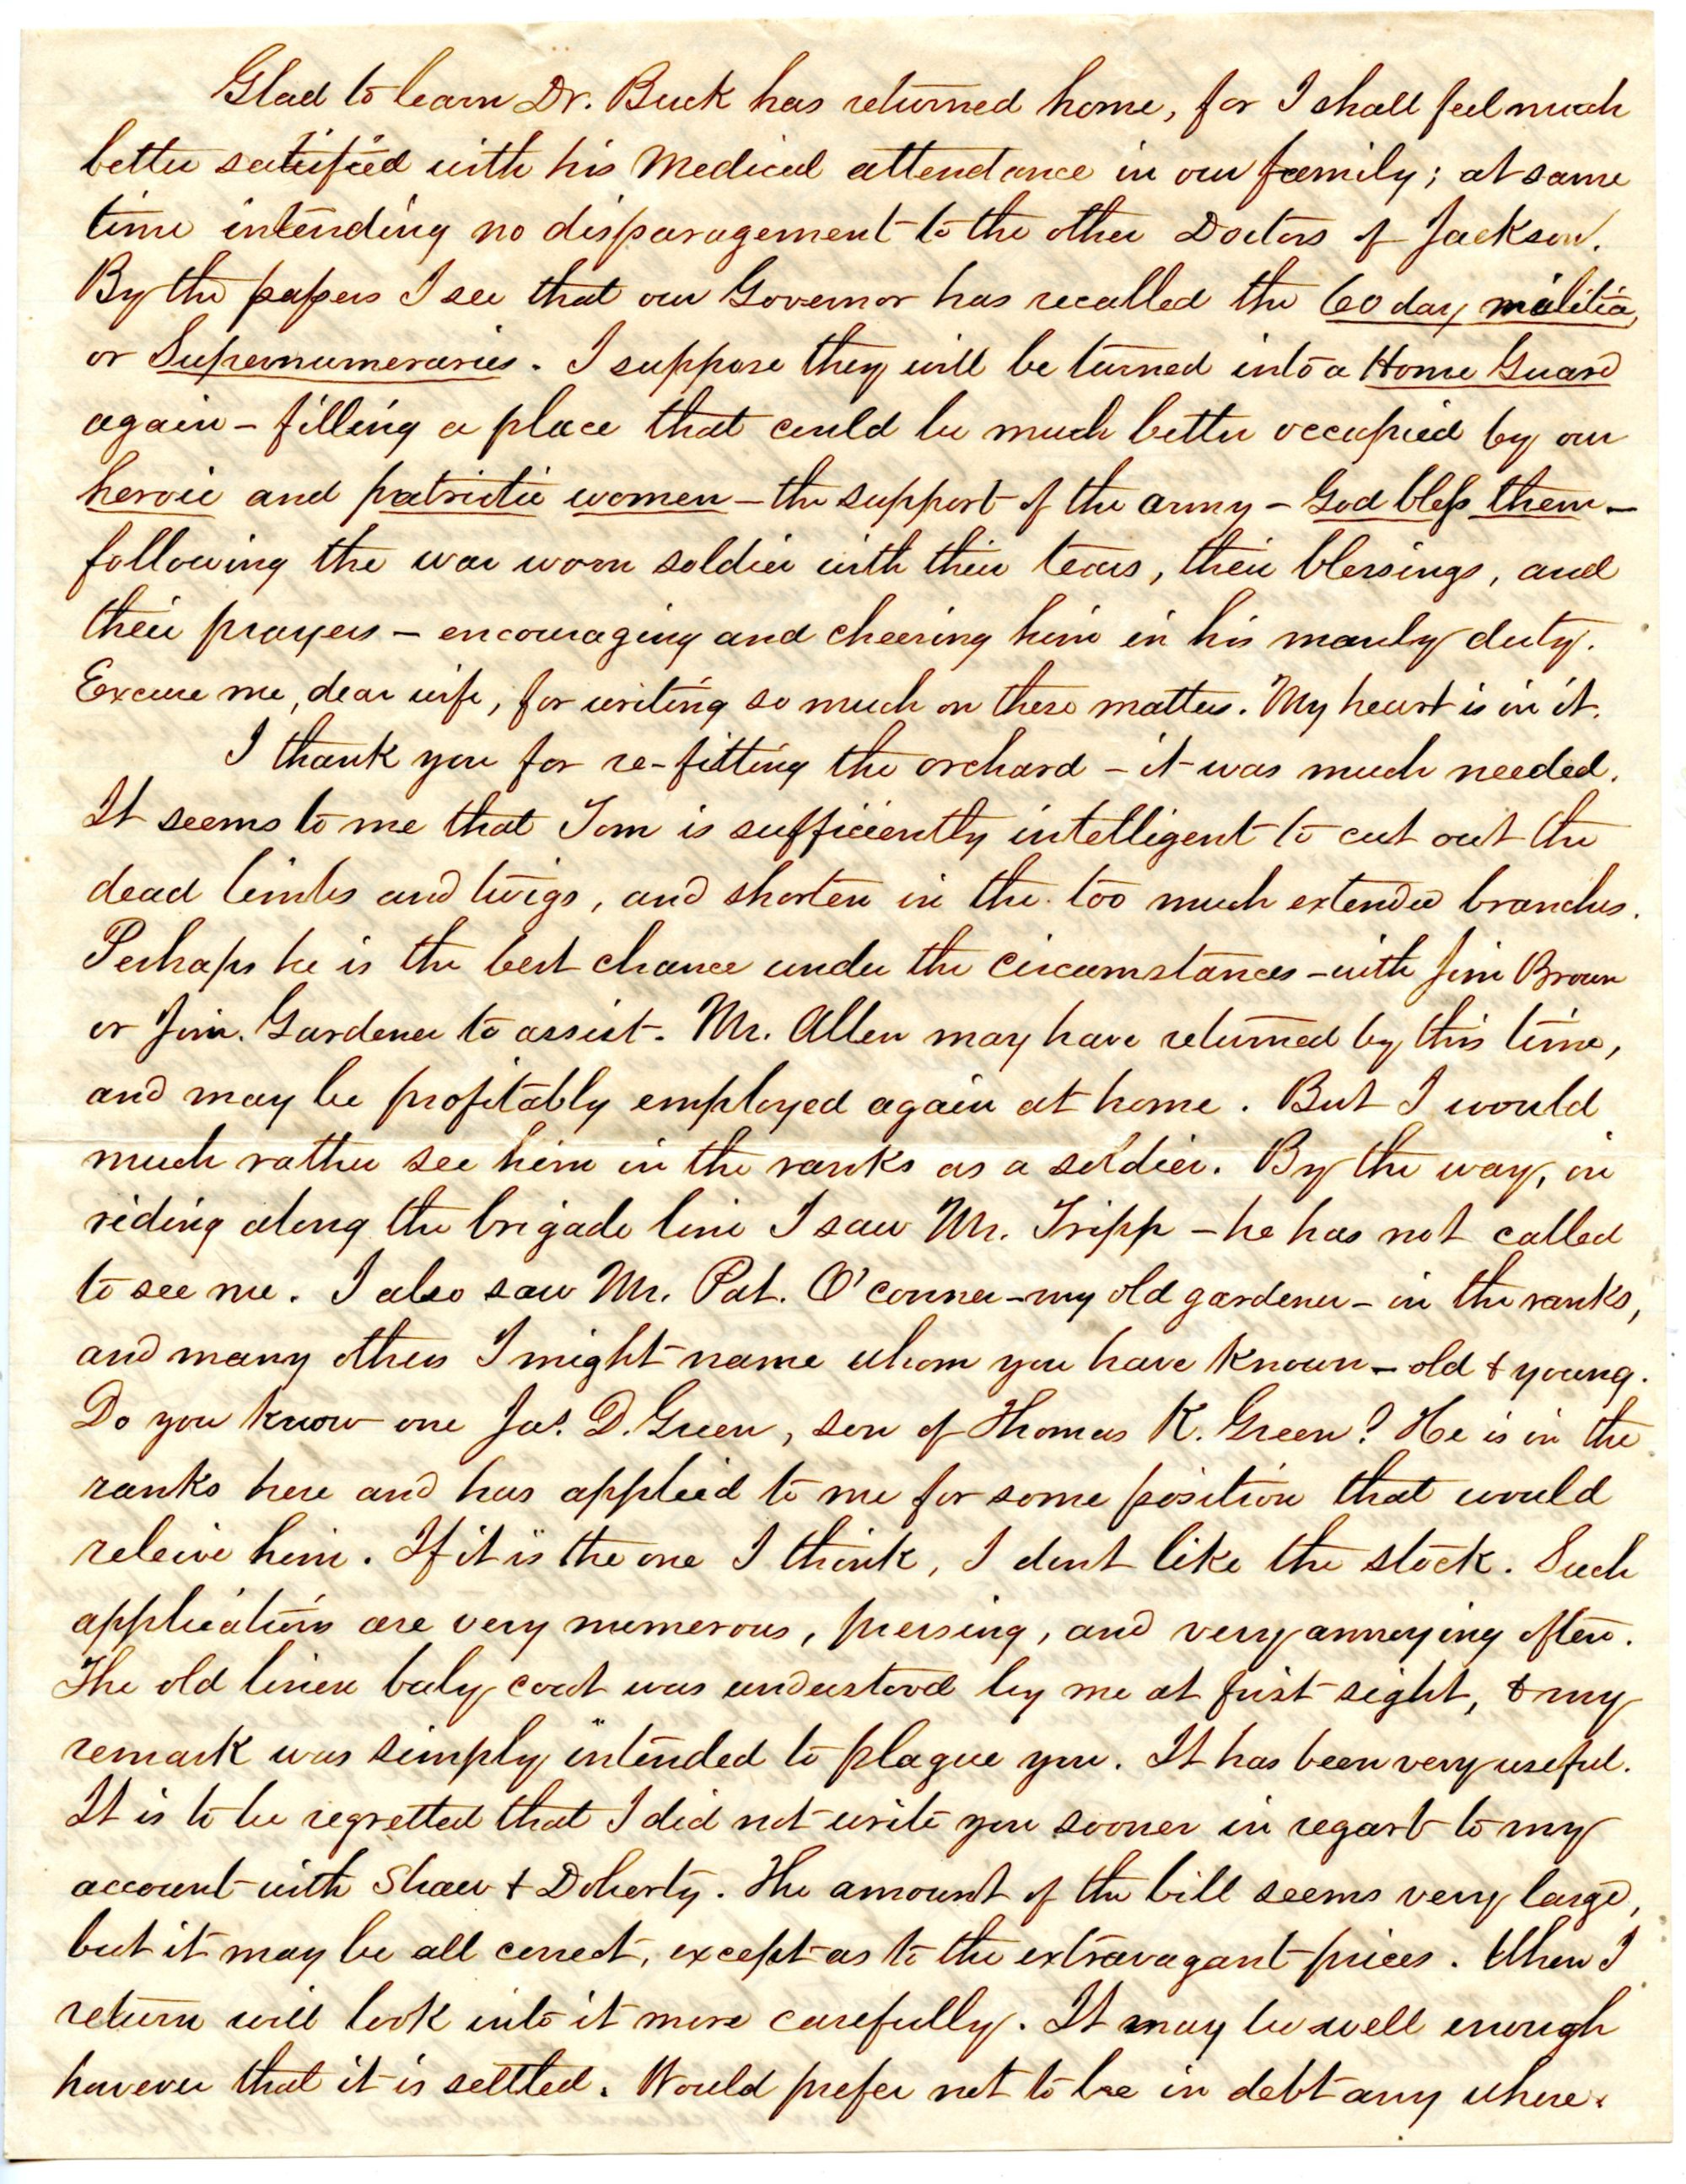 Glad to learn Dr. Buck has returned home, for I shall feel much
better satisfied with his Medical attendance in our family; at same
time intending no disparagement to the other Doctors of Jackson.
By the papers I see that our Governor has recalled the 60 day militia,
or Supernumeraries. I suppose they will be turned into a Home Guard
again – filling a place that could be much better occupied by our
heroic and patriotic women – the support of the army – God bless them –
following the war worn soldier with their tears, their blessings, and
their prayers – encouraging and cheering him in his manly duty.
Excuse me, dear wife, for writing so much on these matters. My heart is in it.
I thank you for re-fitting the orchard – it was much needed.
It seems to me that Tom is sufficiently intelligent to cut out the
dead limbs and twigs, and shorten in the too much extended branches.
Perhaps he is the best chance under the circumstances – with Jim Brown
or Jim. Gardener to assist. Mr. Allen may have returned by this time,
and may be profitably employed again at home. But I would
much rather see him in the ranks as a soldier. By the way, in
riding along the brigade line I saw Mr. Tripp – he has not called
to see me. I also saw Mr. Pat. O'conner – my old gardener – in the ranks,
and many others I might name whom you have known – old & young.
Do you know one Jas. D. Green, son of Thomas K. Green? He is in the
ranks here and has applied to me for some position that would
releive him. If it is the one I think, I dont like the stock. Such
applications are very numerous, pressing, and very annoying often.
The old linen baby coat was understood by me at first sight, & my
remark was simply intended to plague you. It has been very useful.
It is to be regretted that I did not write you sooner in regard to my
account with Shaw & Doherty. The amount of the bill seems very large,
but it may be all correct, except as to the extravagant prices. When I
return will look into it more carefully. It may be well enough
however that it is settled. Would prefer not to be in debt any where.